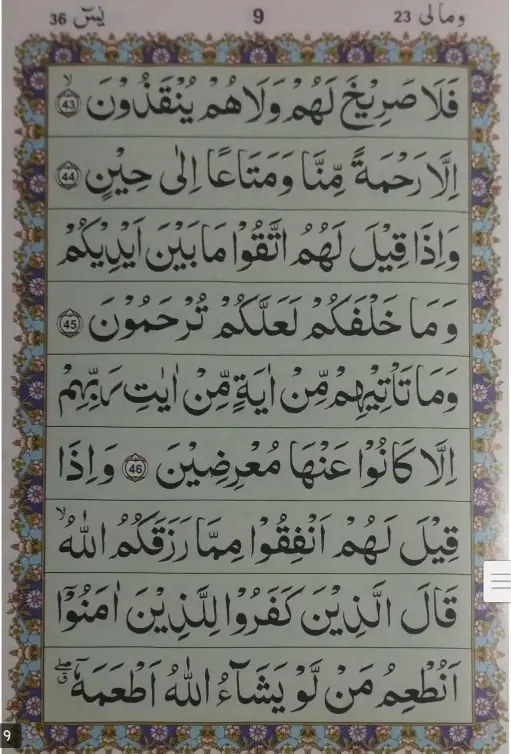 یٰسٓ 36 9 ومالی 23
فَلَا صَرِيْخَ لَهُمْ وَلَا هُمْ يُنْقَذُوْنَ ۙ 43
اِلَّا رَحْمَةً مِّنَّا وَمَتَاعًا اِلٰى حِيْنٍ 44
وَاِذَا قِيْلَ لَهُمُ اتَّقُوْا مَا بَيْنَ اَيْدِيْكُمْ
وَمَا خَلْفَكُمْ لَعَلَّكُمْ تُرْحَمُوْنَ 45
وَمَا تَاْتِيْهِمْ مِّنْ اٰيَةٍ مِّنْ اٰيٰتِ رَبِّهِمْ
اِلَّا كَانُوْا عَنْهَا مُعْرِضِيْنَ 46 وَاِذَا
قِيْلَ لَهُمْ اَنْفِقُوْا مِمَّا رَزَقَكُمُ اللّٰهُ ۙ
قَالَ الَّذِيْنَ كَفَرُوْا لِلَّذِيْنَ اٰمَنُوْۤا
اَنُطْعِمُ مَنْ لَّوْ يَشَآءُ اللّٰهُ اَطْعَمَهٗۤ ۖق
9